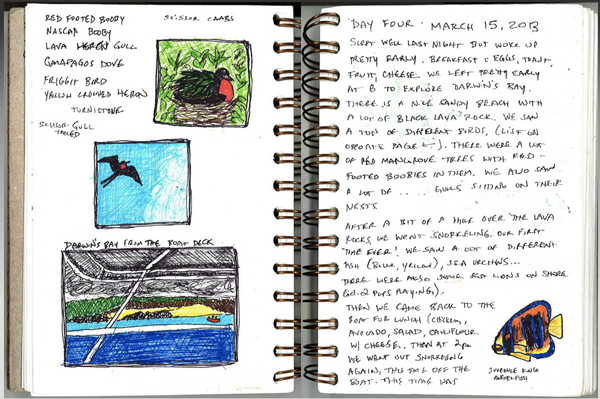 RED FOOTED BOOBY
NASCAR BOOBY
LAVA HERON GULL
GALAPAGOS DOVE
FRIGGIT BIRD
YELLOW CROWNED HERON
TURNISTONE
SCISSOR GULL
TAILED
SCISSOR CRABS
DARWIN'S BAY FROM THE BOAT DECK
DAY FOUR MARCH 15, 2013
SLEPT WELL LAST NIGHT BUT WOKE UP
PRETTY EARLY. BREAKFAST = EGGS, TOAST,
FRUIT, CHEESE. WE LEFT PRETTY EARLY
AT 8 TO EXPLORE DARWIN'S BAY.
THERE IS A NICE SANDY BEACH WITH
A LOT OF BLACK LAVA ROCK. WE SAW
A TON OF DIFFERENT BIRDS, (LIST ON
OPPOSITE PAGE ←). THERE WERE A LOT
OF RED MANGROVE TREES WITH RED-
FOOTED BOOBIES IN THEM. WE ALSO SAW
A LOT OF .... GULLS SITTING ON THEIR
NESTS
AFTER A BIT OF A HIKE OVER THE LAVA
ROCKS, WE WENT SNORKELING. OUR FIRST
TIME EVER! WE SAW A LOT OF DIFFERENT
FISH (BLUE, YELLOW), SEA URCHINS...
THERE WERE ALSO SOME SEA LIONS ON SHORE
2 PUPS PLAYING).
THEN WE CAME BACK TO THE
BOAT FOR LUNCH (CHICKEN,
AVOCADO, SALAD, CAULIFLOUR
W/ CHEESE.. THAN AT 2pm
WE WENT OUT SNORKELING
AGAIN, THIS TIME OFF THE
BOAT. THIS TIME WAS
JUVENILE KING
ANGELFISH